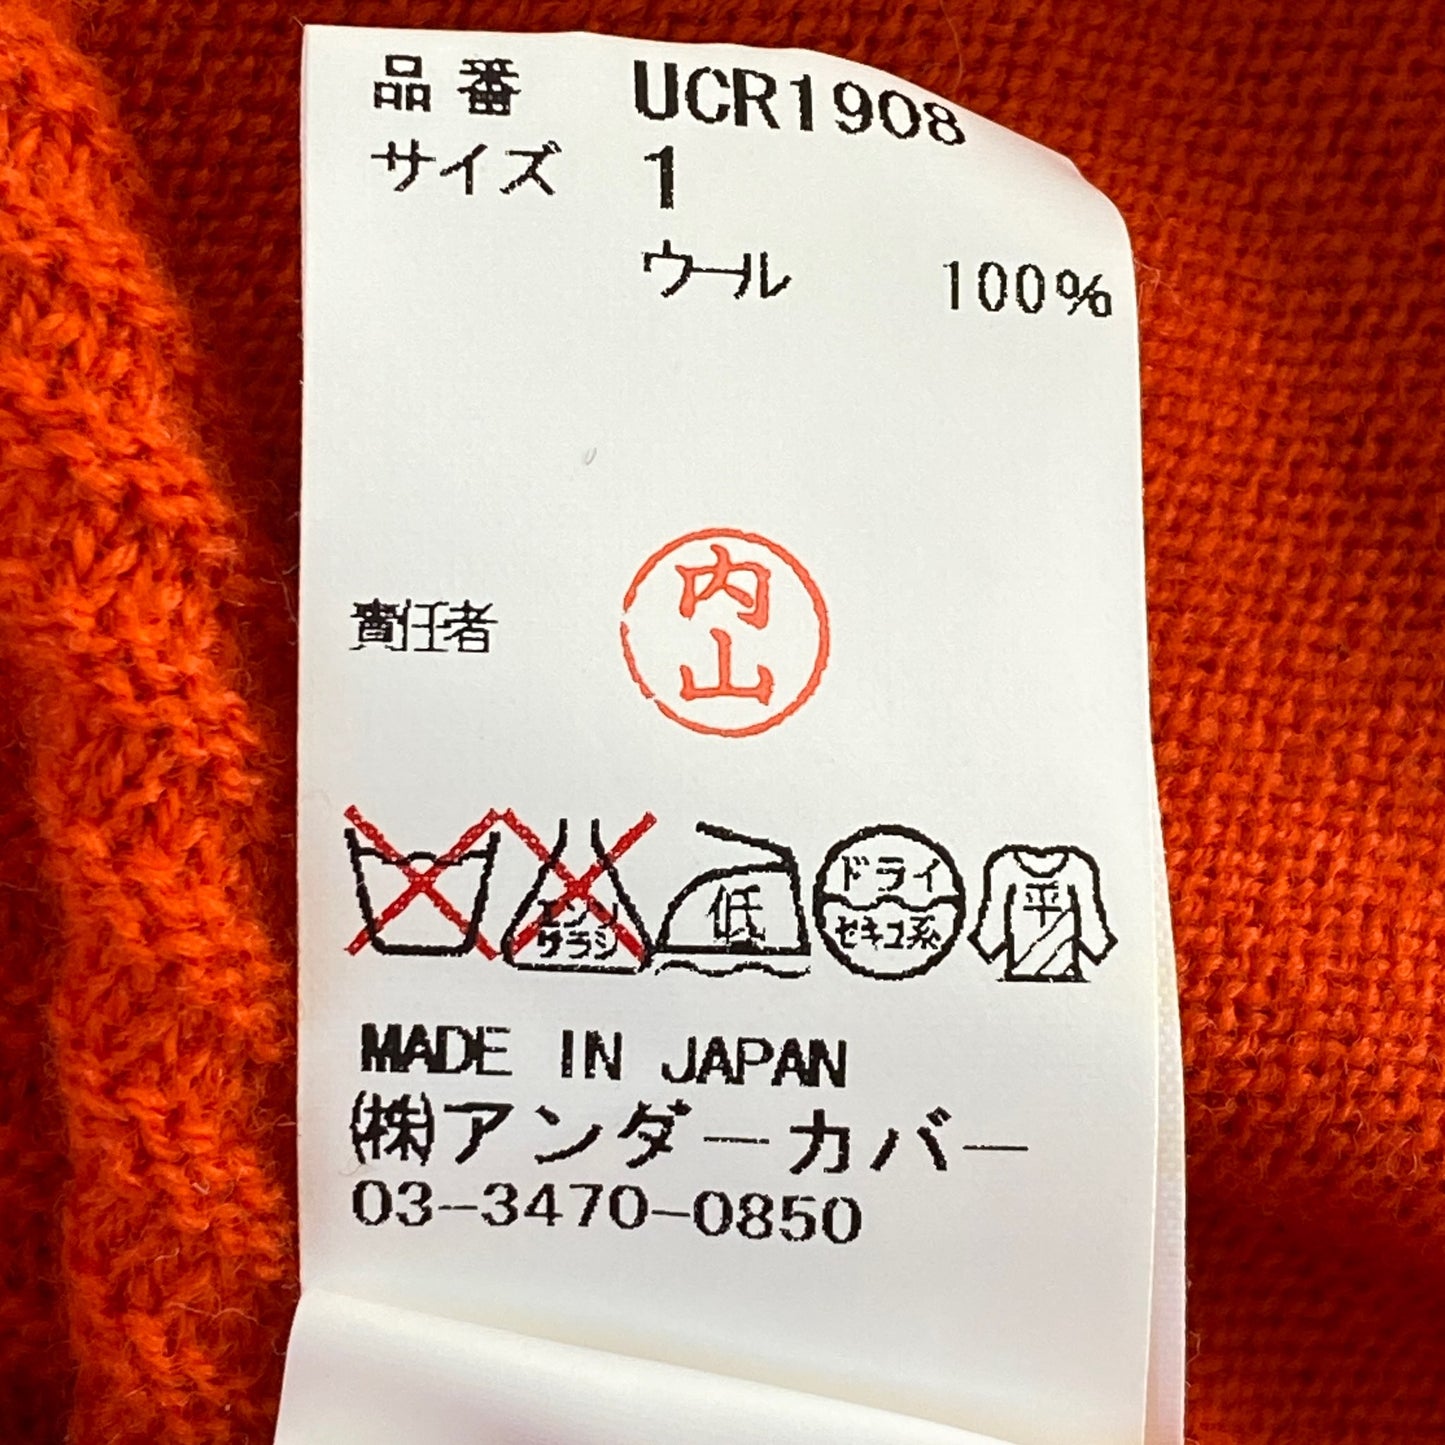 品番 UCR1908
サイズ 1
ウール 100%
責任者 内山
エンソ
サラシ
低
ドライ
セキユ系
平
MADE IN JAPAN
㈱アンダーカバー
03-3470-0850